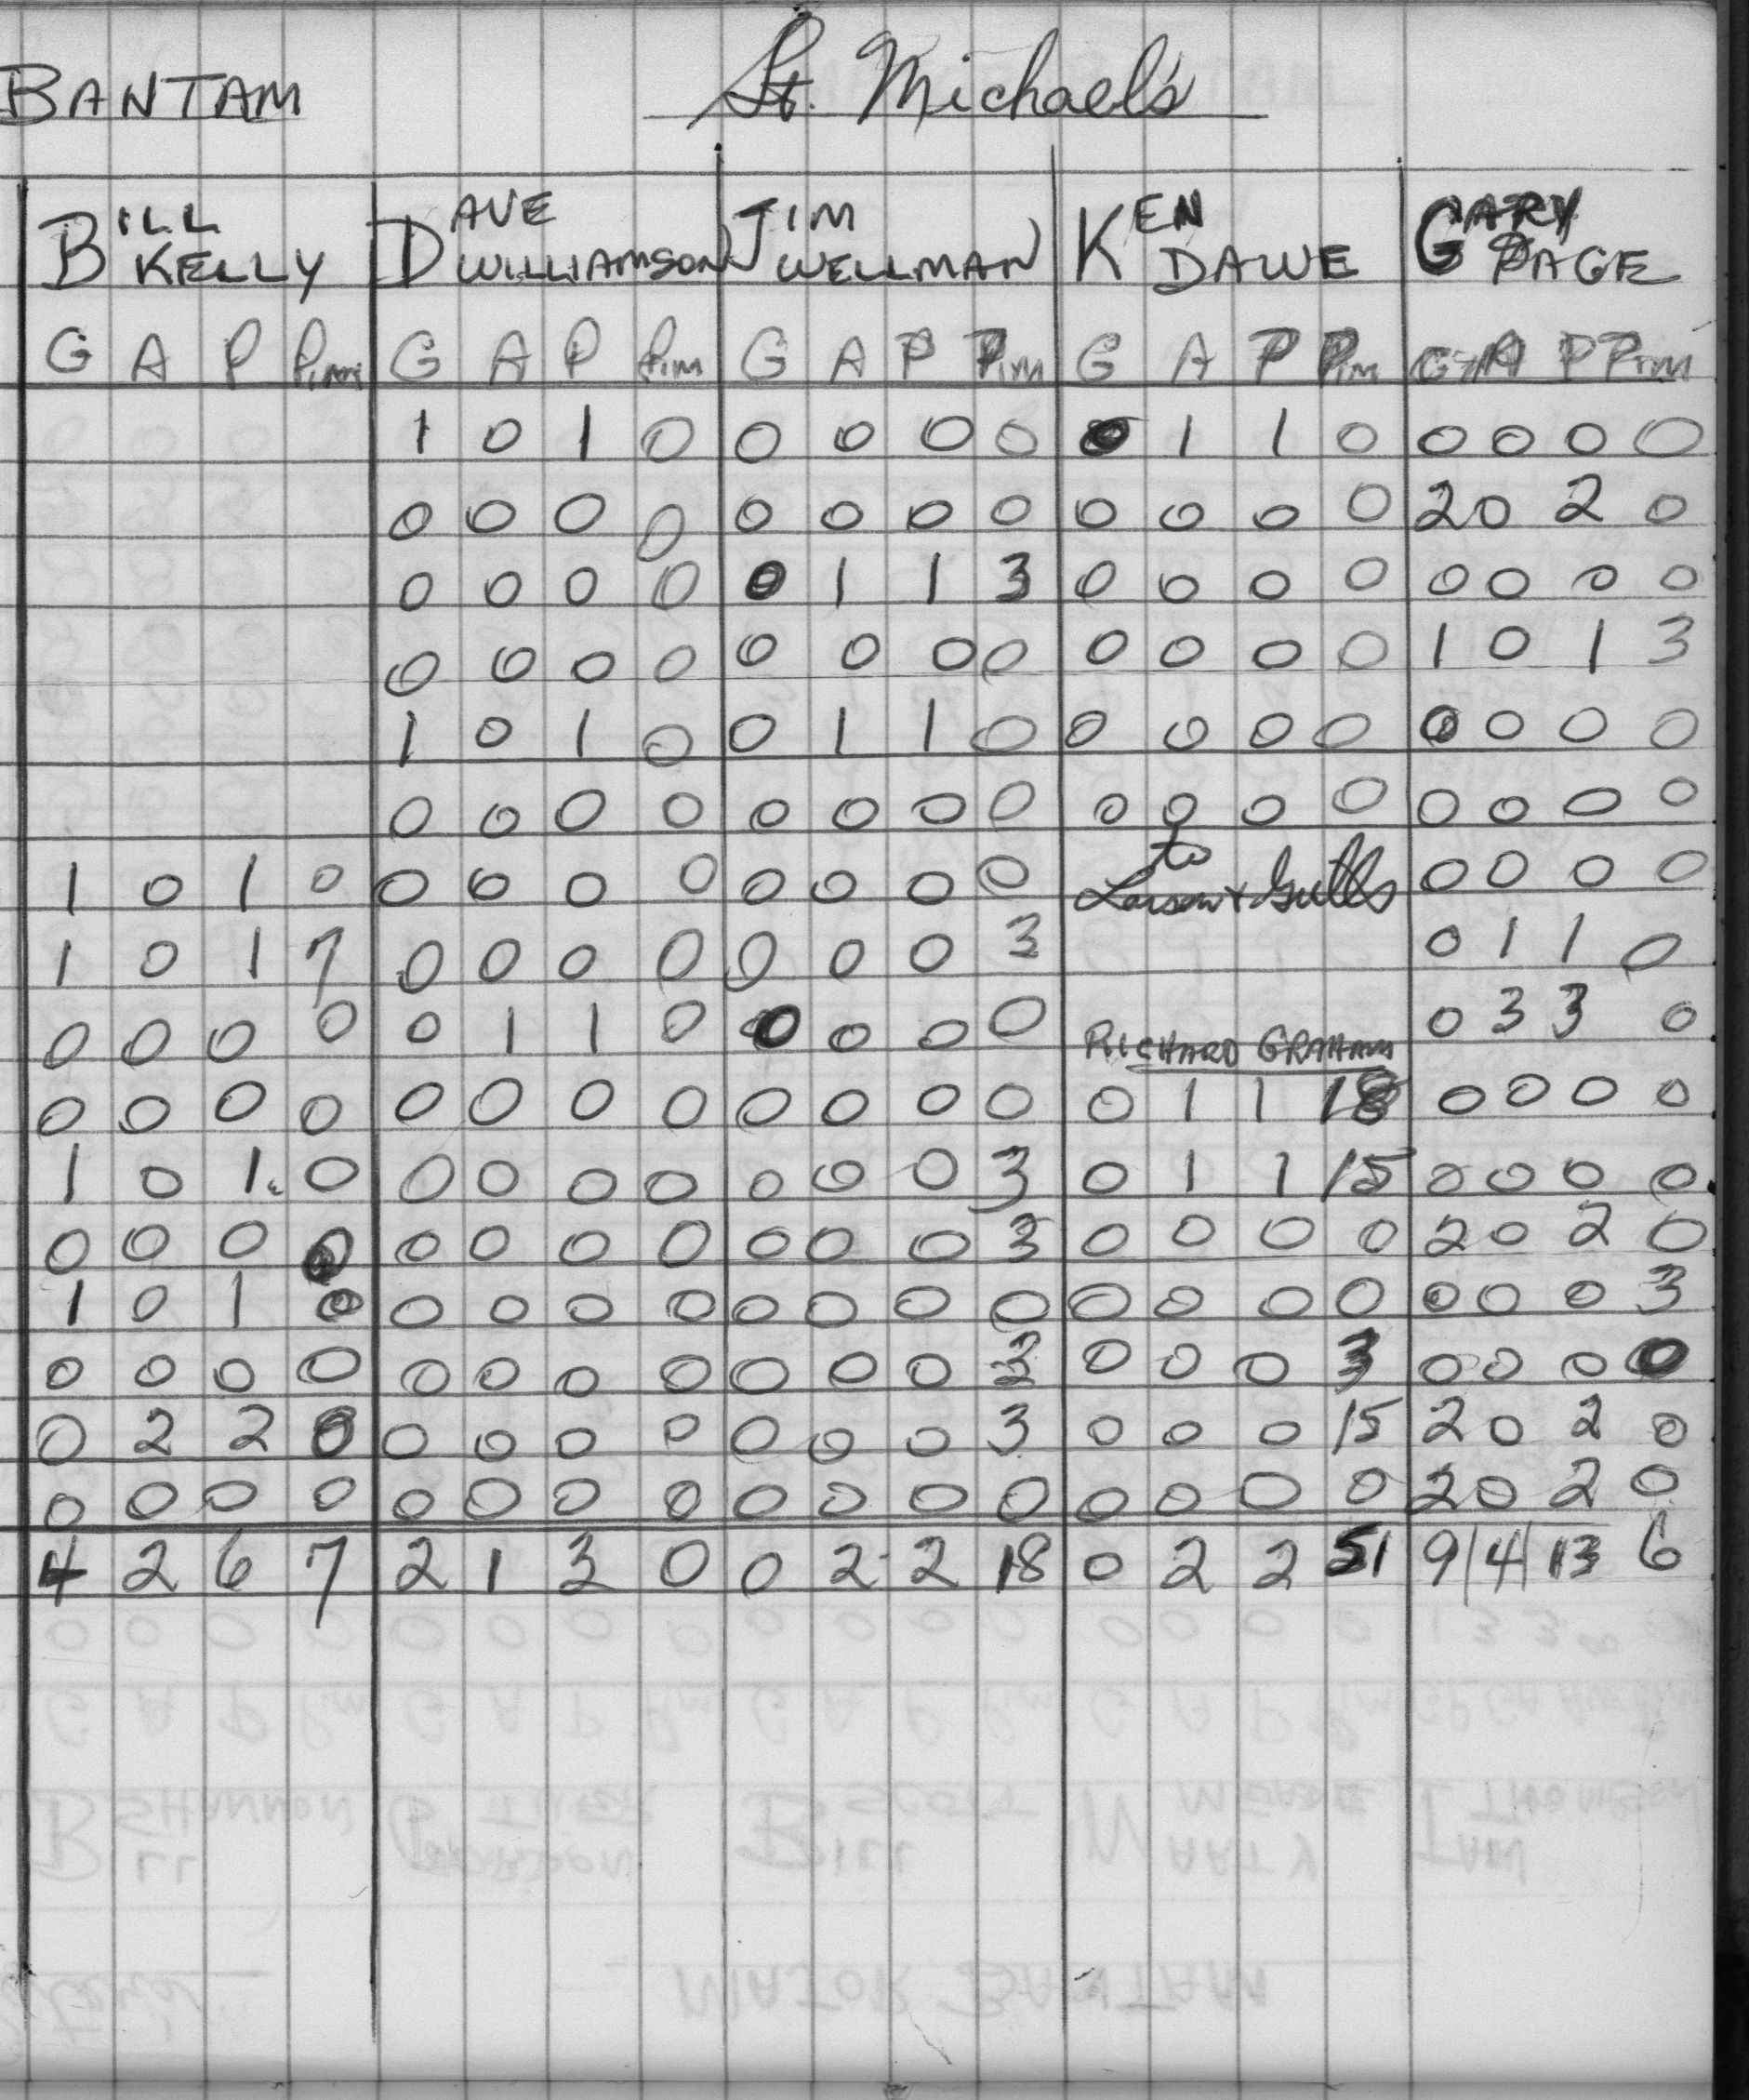 BANTAM St. Michael's
BILL KELLY DAVE WILLIAMSON JIM WELLMAN KEN DAWE GARY PAGE
G A P Pim G A P Pim G A P Pim G A P Pim G A P Pim
1 0 1 0 0 0 0 0 0 1 1 0 0 0 0 0
0 0 0 0 0 0 0 0 0 0 0 0 2 0 2 0
0 0 0 0 0 1 1 3 0 0 0 0 0 0 0 0
0 0 0 0 0 0 0 0 0 0 0 0 1 0 1 3
1 0 1 0 0 1 1 0 0 0 0 0 0 0 0 0
0 0 0 0 0 0 0 0 0 0 0 0 0 0 0 0
1 0 1 0 0 0 0 0 0 0 0 0 to 0 0 0 0
Gulls
1 0 1 7 0 0 0 0 0 0 0 3 0 1 1 0
0 0 0 0 0 1 1 0 0 0 0 0 RICHARD GRAHAM 0 3 3 0
0 0 0 0 0 0 0 0 0 0 0 0 0 1 1 18 0 0 0 0
1 0 1. 0 0 0 0 0 0 0 0 3 0 1 1 15 0 0 0 0
0 0 0 0 0 0 0 0 0 0 0 3 0 0 0 0 2 0 2 0
1 0 1 0 0 0 0 0 0 0 0 0 0 0 0 0 0 0 0 3
0 0 0 0 0 0 0 0 0 0 0 3 0 0 0 3 0 0 0 0
0 2 2 0 0 0 0 0 0 0 0 3 0 0 0 15 2 0 2 0
0 0 0 0 0 0 0 0 0 0 0 0 0 0 0 0 2 0 2 0
4 2 6 7 2 1 3 0 0 2 2 18 0 2 2 51 9 4 13 6